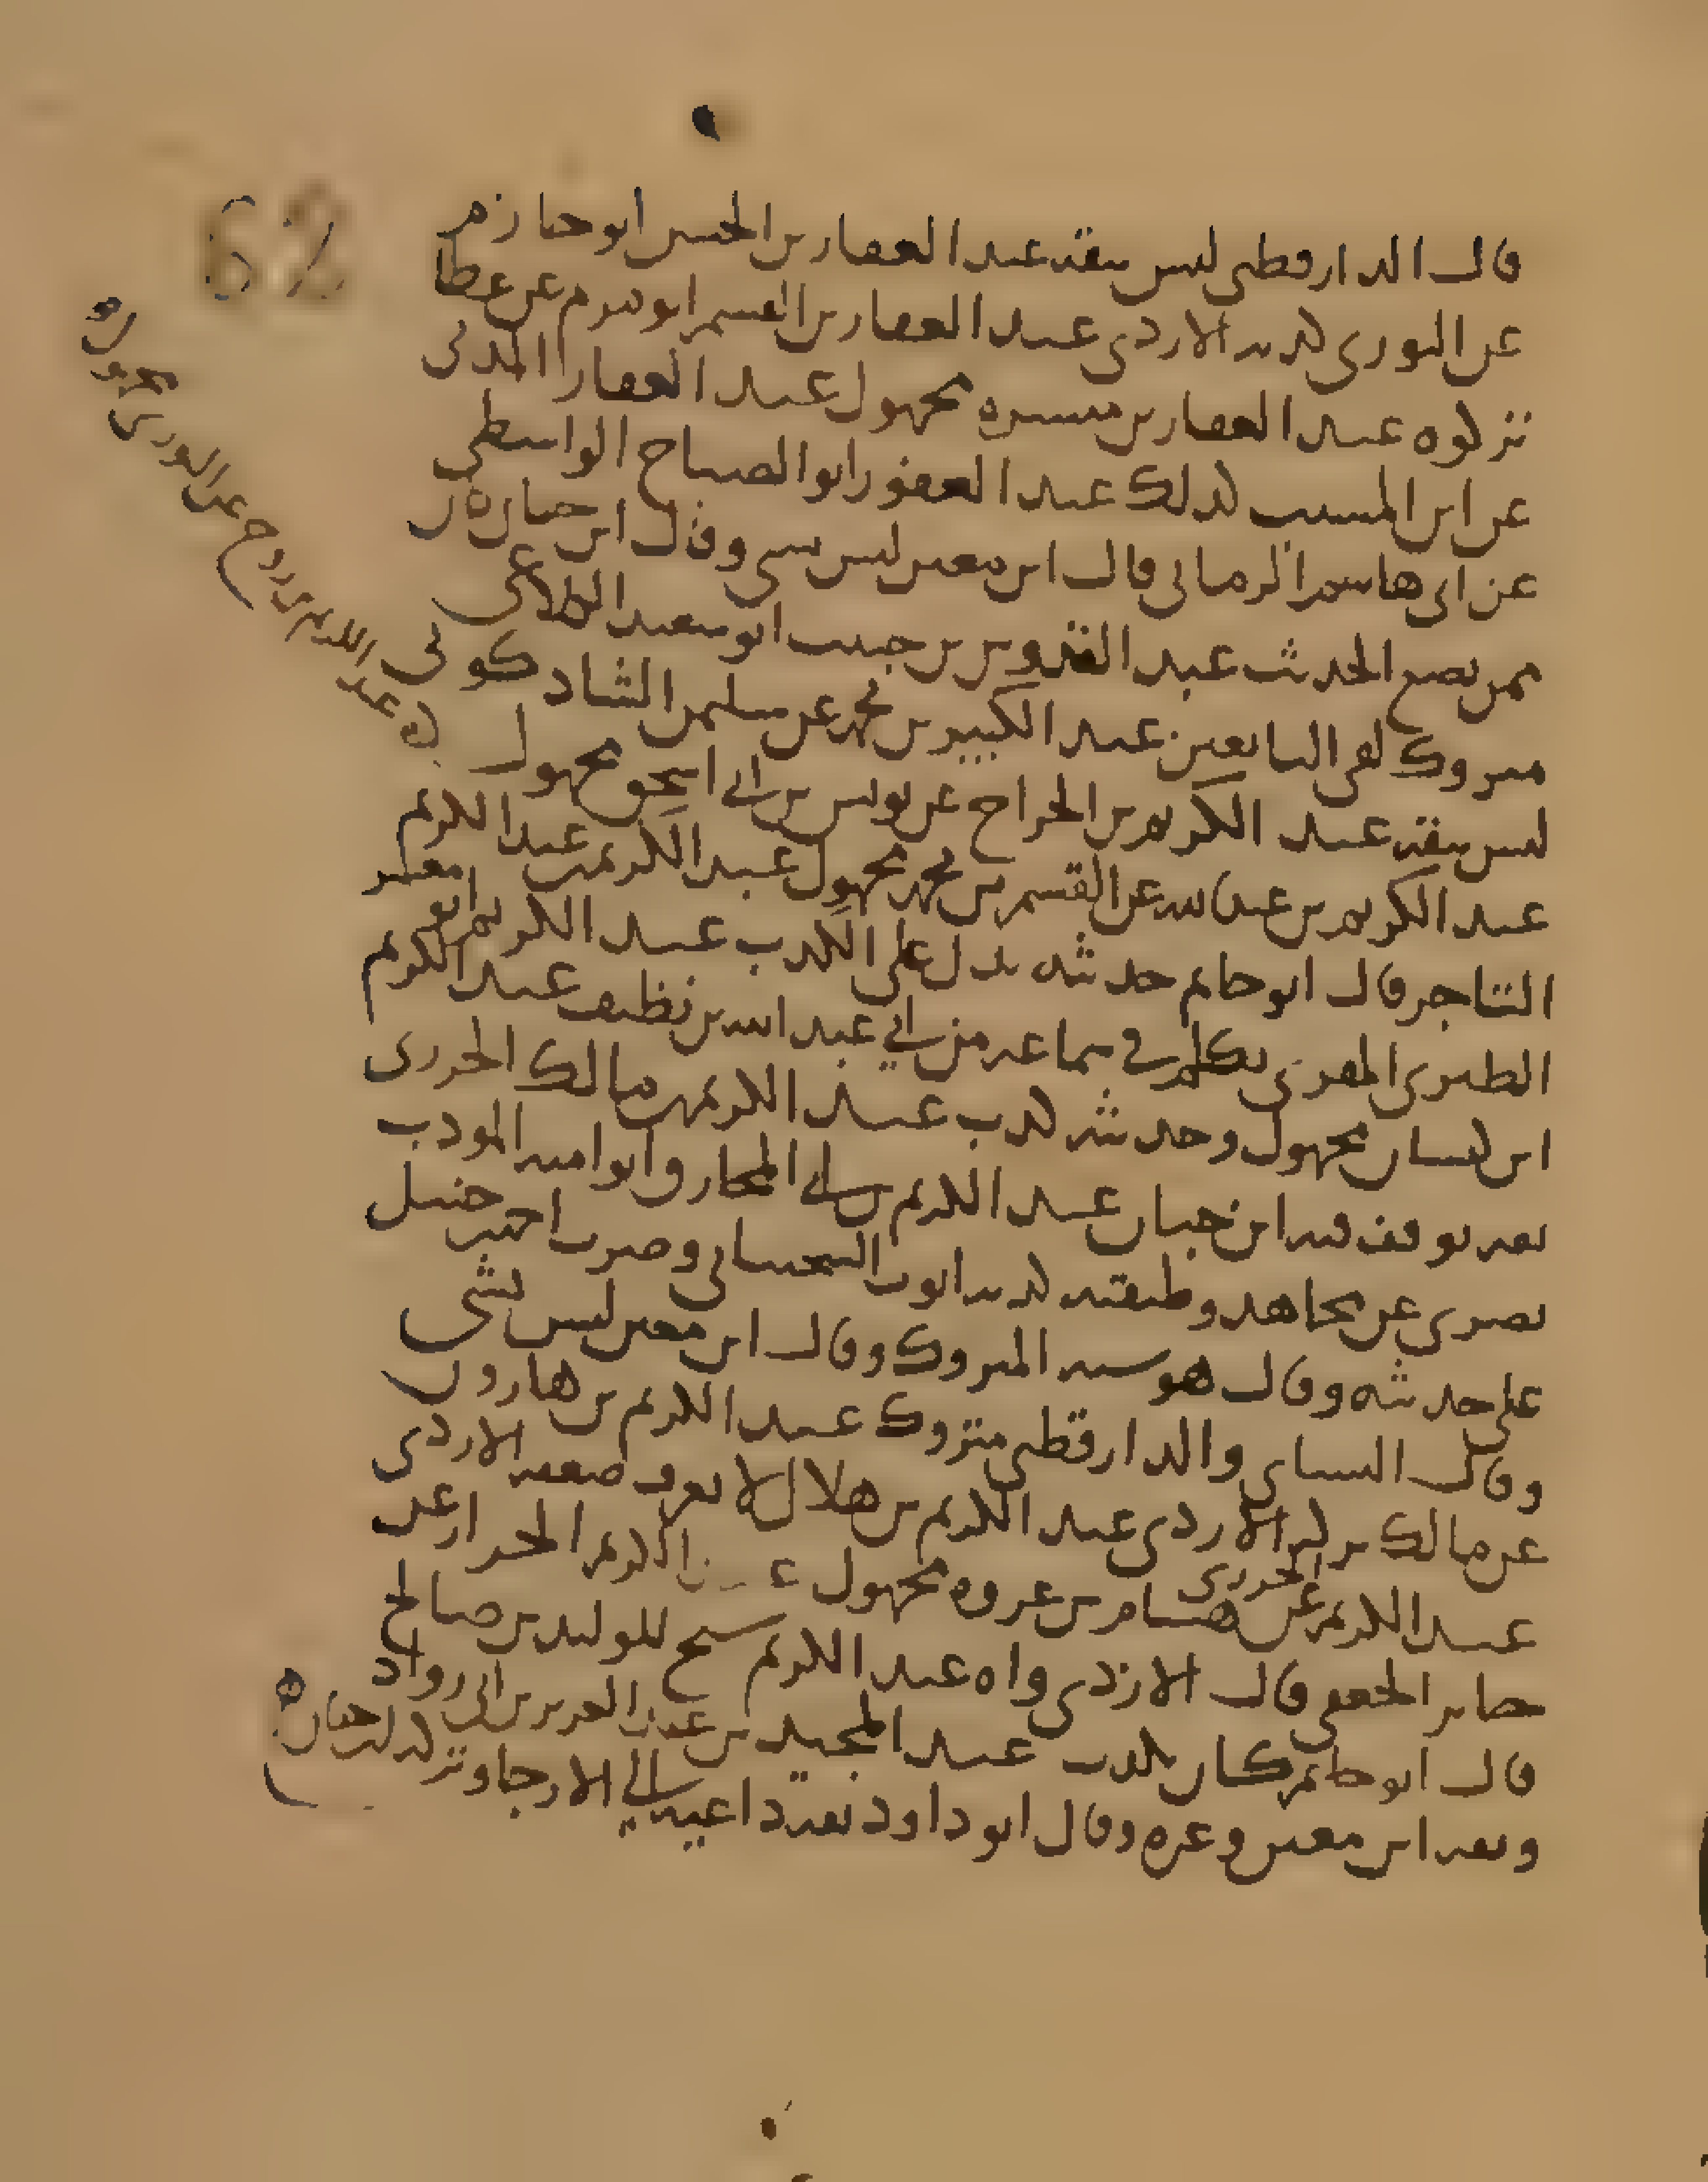 62
قال الدارقطني ليس بثقة عبد الغفار بن الحسن ابو حازم
عن الثوري كذبه الازدي عبد الغفار بن القسم ابو مريم عن عطا
تركوه عبد الغفار بن ميسرة مجهول عبد الغفار المدني
عن ابن المسيب كذلك عبد الغفور ابو الصباح الواسطي
عن ابي هاشم الرماني قال ابن معين ليس بشي وقال ابن حبان كان
ممن يضع الحديث عبد القدوس بن حبيب ابو سعيد الكلاعي
متروك لقي التابعين عبد الكبير بن محمد عن سليمن الشاذكوني
ليس بثقة عبد الكريم بن الجراح عن يونس بن ابي اسحق مجهول
عبد الكريم بن عبد الله عن القسم بن محمد مجهول عبد الكريم عن عبد الكريم
التاجر قال ابو حاتم حديثه يدل على الكذب عبد الكريم ابو معشر
الطبري المقري تكلم في سماعه من ابي عبد الله بن نظيف عبد الكريم
ابن كيسان مجهول وحديثه كذب عبد الكريم بن مالك الجزري
ثقة توقف فيه ابن حبان عبد الكريم بن ابي المخارق ابو امية المودب
بصري عن مجاهد وطبقته كذبه ايوب السختياني وضرب احمد حنبل
على حديثه وقال هو شبه المتروك وقال ابن معين ليس بشي
وقال النسائي والدارقطني متروك عبد الكريم بن هارون
عن مالك بن الازدي عبد الكريم بن هلال لا يعرف ضعفه الازدي
عبد الكريم الجزري عن هشام بن عروه مجهول عبد الكريم الخراز عن
جابر الجعفي قال الازدي واه عبد الكريم شيخ للوليد بن صالح
قال ابو حاتم كان يكذب عبد المجيد بن عبد العزيز بن ابي رواد
وثقه ابن معين وغيره وقال ابو داود ثقة داعية الى الارجا وتركه ابن حبان
عبد الكريم بن روح عن الثوري مجهول